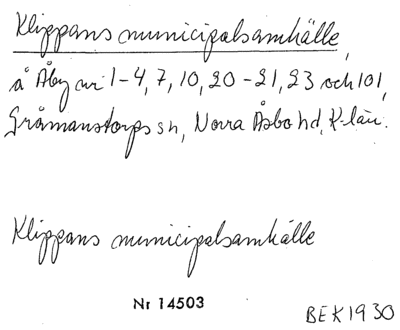 Klippans municipalsamhälle,
å Åby nr 1-4, 7, 10, 20-21, 23 och 101,
Gråmanstorps sn, Norra Åsbo hd, K-län.
Klippans municipalsamhälle
Nr 14503
BEK1930